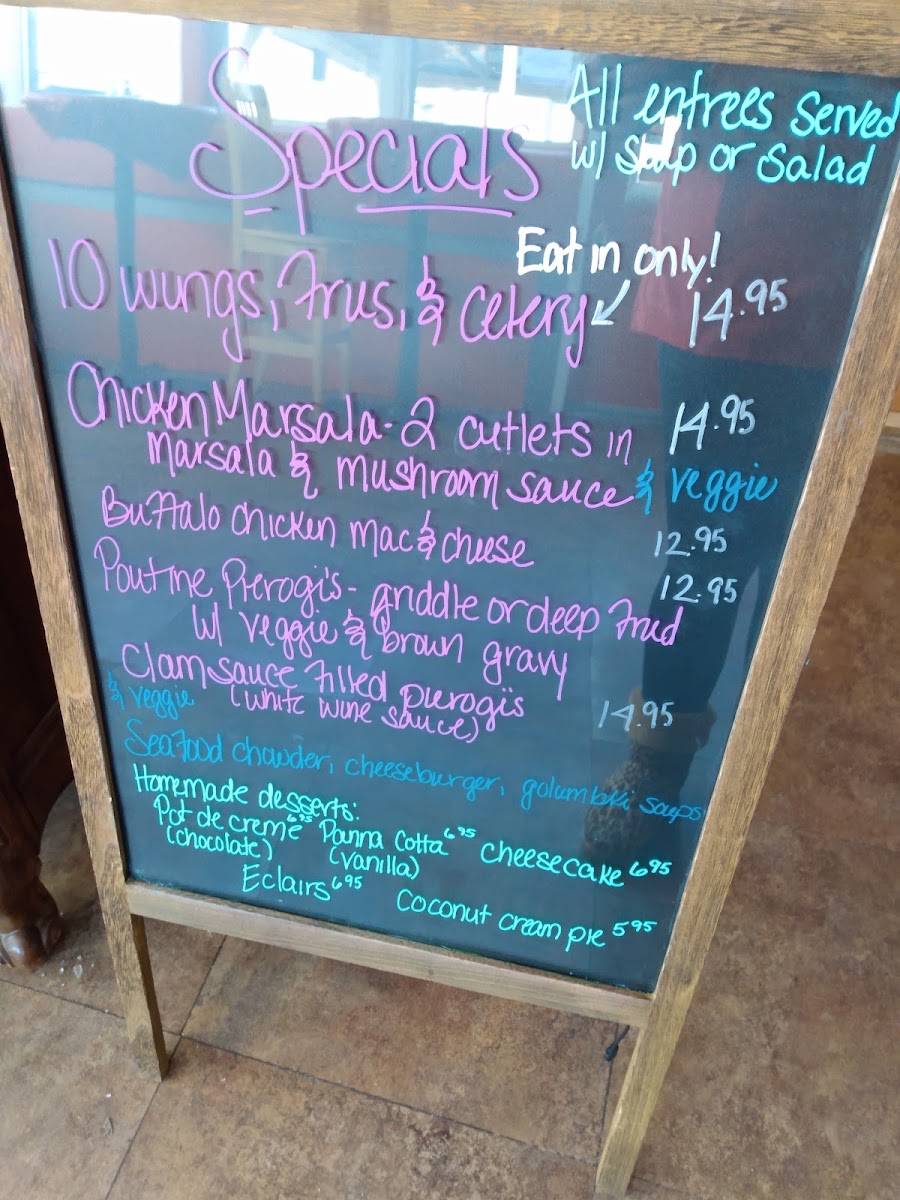 Specials
All entrees served
w/ soup or salad
Eat in only!
10 wings, fries, & celery 14.95
Chicken Marsala - 2 cutlets in 14.95
marsala & mushroom sauce & veggie
Buffalo chicken mac & cheese 12.95
Poutine Pierogi's - griddle or deep fried 12.95
w/ veggie & brown gravy
Clam sauce filled pierogi's
& veggie (white wine sauce) 14.95
Seafood chowder, cheeseburger, golumbki soups
Homemade desserts:
Pot de creme 6.95 Panna Cotta 6.95 cheesecake 6.95
(chocolate) (vanilla)
Eclairs 6.95 Coconut cream pie 5.95